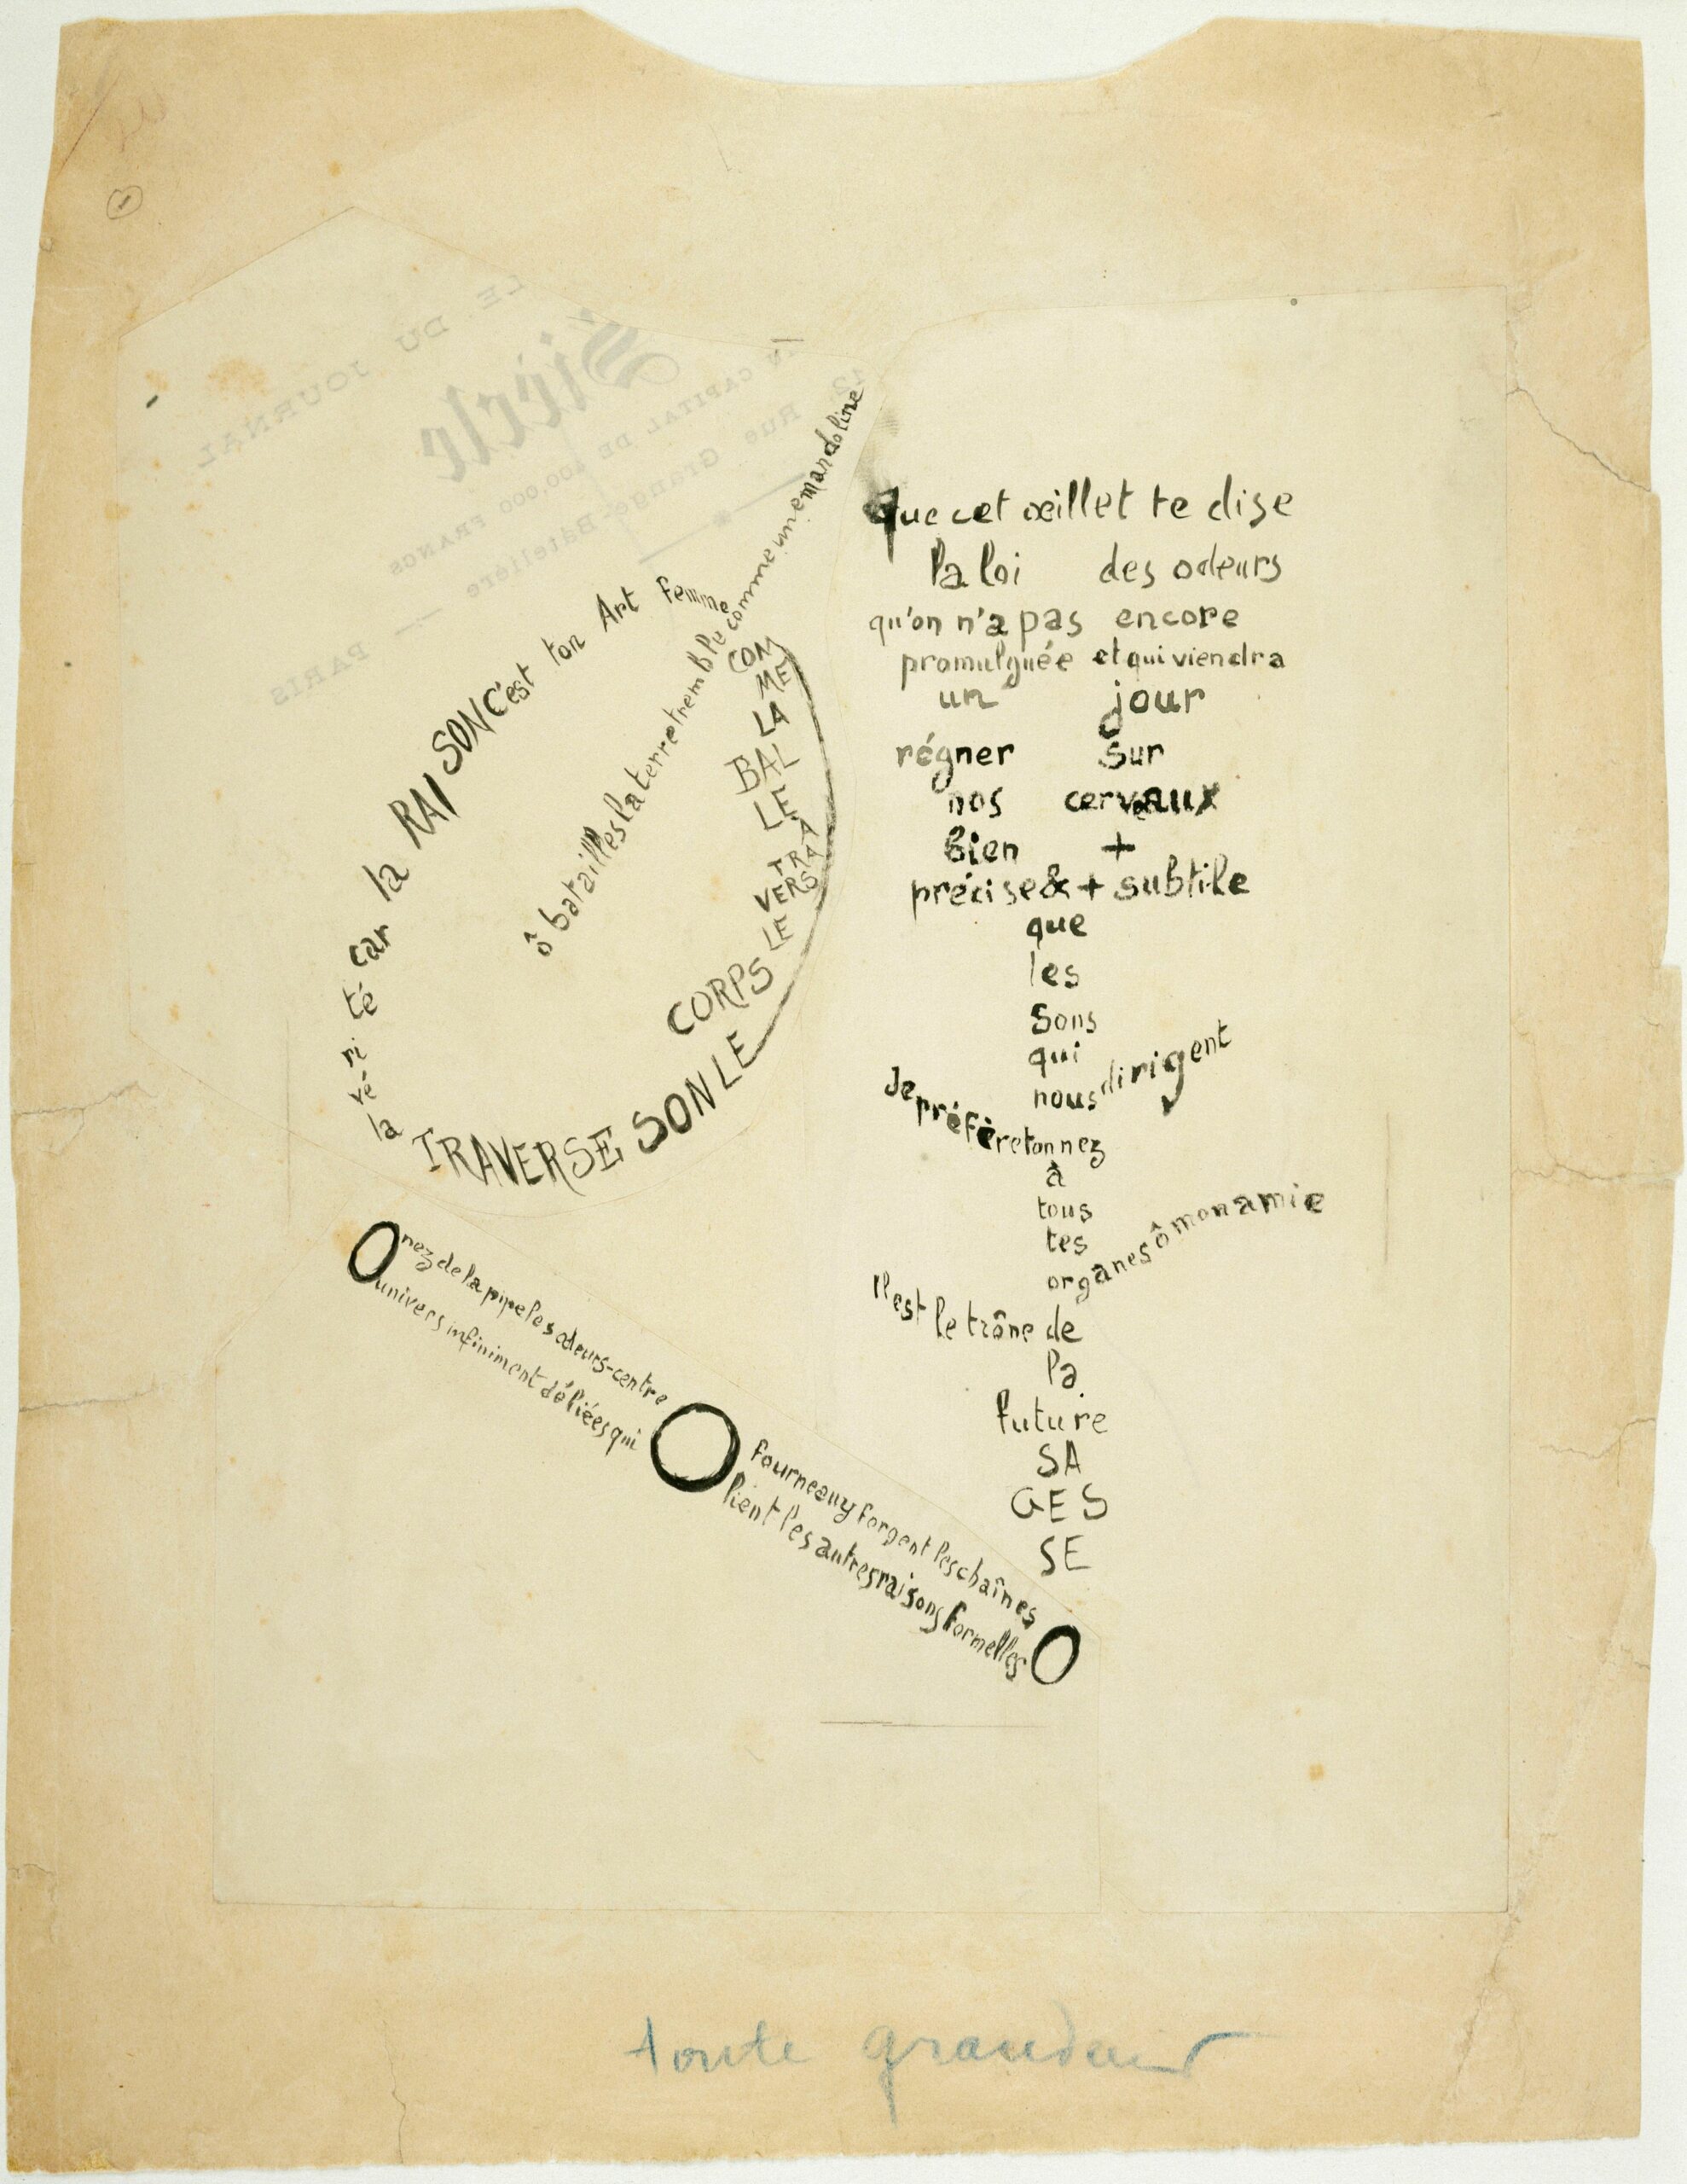 LE DU JOURNAL
Siècle
CAPITAL DE FRANCS
Rue Grange-Batelière
PARIS
ô batailles la terre tremble comme une mandoline
COM
ME
LA
BAL
LE
A
TRA
VERS
LE
CORPS
LE SON TRAVERSE
la
vé
ri
té
car
la
RAI
SON C'est ton Art femme
que cet œillet te dise
la loi des odeurs
qu'on n'a pas encore
promulguée et qui viendra
un jour
régner sur
nos cerveaux
bien +
précise & + subtile
que
les
sons
qui
nous dirigent
Je préfère ton nez
à
tous
tes
organes ô mon amie
Il est le trône de
la
future
SA
GES
SE
O nez de la pipe les odeurs-centre O fourneauy forgent les chaînes O
univers infiniment déliées qui lient les autres raisons formelles
toute grandeur